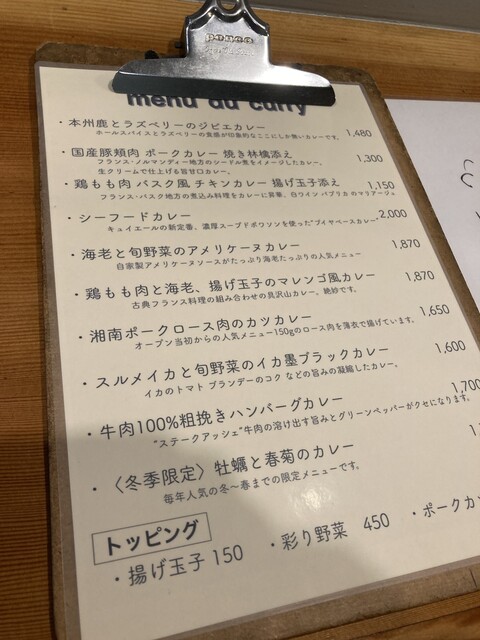 menu au curry
・本州鹿とラズベリーのジビエカレー 1,480
ホールスパイスとラズベリーの食感が印象的なここにしか無いカレーです。
・国産豚頬肉 ポークカレー 焼き林檎添え 1,300
フランス・ノルマンディー地方のシードル煮をイメージしたカレー。
生クリームで仕上げる旨甘口カレー。
・鶏もも肉 バスク風 チキンカレー 揚げ玉子添え 1,150
フランス・バスク地方の煮込み料理をカレーに昇華、白ワイン パプリカ のマリアージュ
・シーフードカレー 2,000
キュイエールの新定番、濃厚スープドポワソンを使った"ブイヤベースカレー"
・海老と旬野菜のアメリケーヌカレー 1,870
自家製アメリケーヌソースがたっぷり海老たっぷりの人気メニュー
・鶏もも肉と海老、揚げ玉子のマレンゴ風カレー 1,870
古典フランス料理の組み合わせの具沢山カレー。絶妙です。
・湘南ポークロース肉のカツカレー 1,650
オープン当初からの人気メニュー150gのロース肉を薄衣で揚げています。
・スルメイカと旬野菜のイカ墨ブラックカレー 1,600
イカのトマト ブランデーのコク などの旨みの凝縮したカレー。
・牛肉100%粗挽きハンバーグカレー 1,700
"ステークアッシェ"牛肉の溶け出す旨みとグリーンペッパーがクセになります。
・〈冬季限定〉牡蠣と春菊のカレー
毎年人気の冬〜春までの限定メニューです。
トッピング
・揚げ玉子 150 ・彩り野菜 450 ・ポークカ